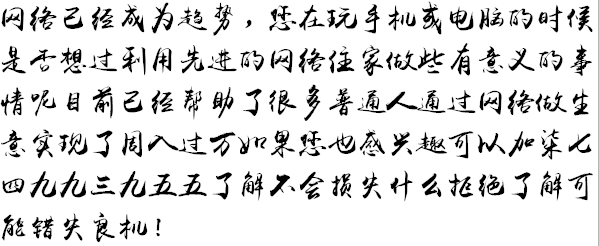 网络已经成为趋势，您在玩手机或电脑的时候
是否想过利用先进的网络住家做些有意义的事
情呢目前已经帮助了很多普通人通过网络做生
意实现了周入过万如果您也感兴趣可以加柒七
四九九三九五五了解不会损失什么拒绝了解可
能错失良机！